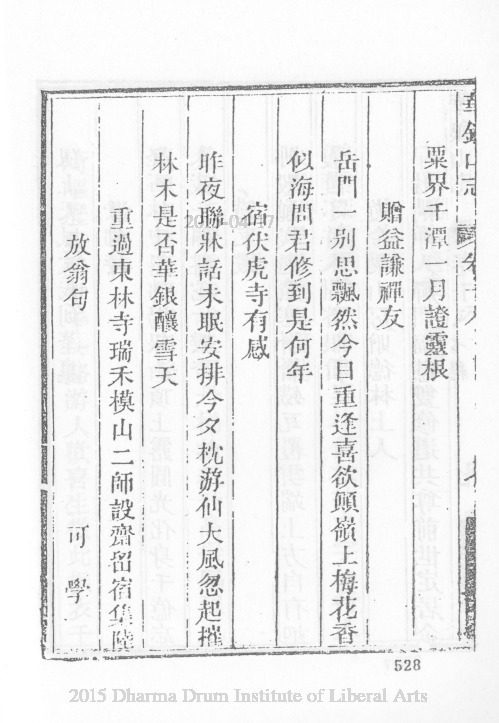 華銀山志
粟界千潭一月證靈根
贈益謙禪友
岳門一別思飄然今日重逢喜欲顛嶺上梅花香
似海問君修到是何年
宿伏虎寺有感
昨夜聯牀話未眠安排今夕枕游仙大風忽起摧
林木是否華銀釀雪天
重過東林寺瑞禾模山二師設齋留宿集陸
放翁句
可學
528
2015 Dharma Drum Institute of Liberal Arts